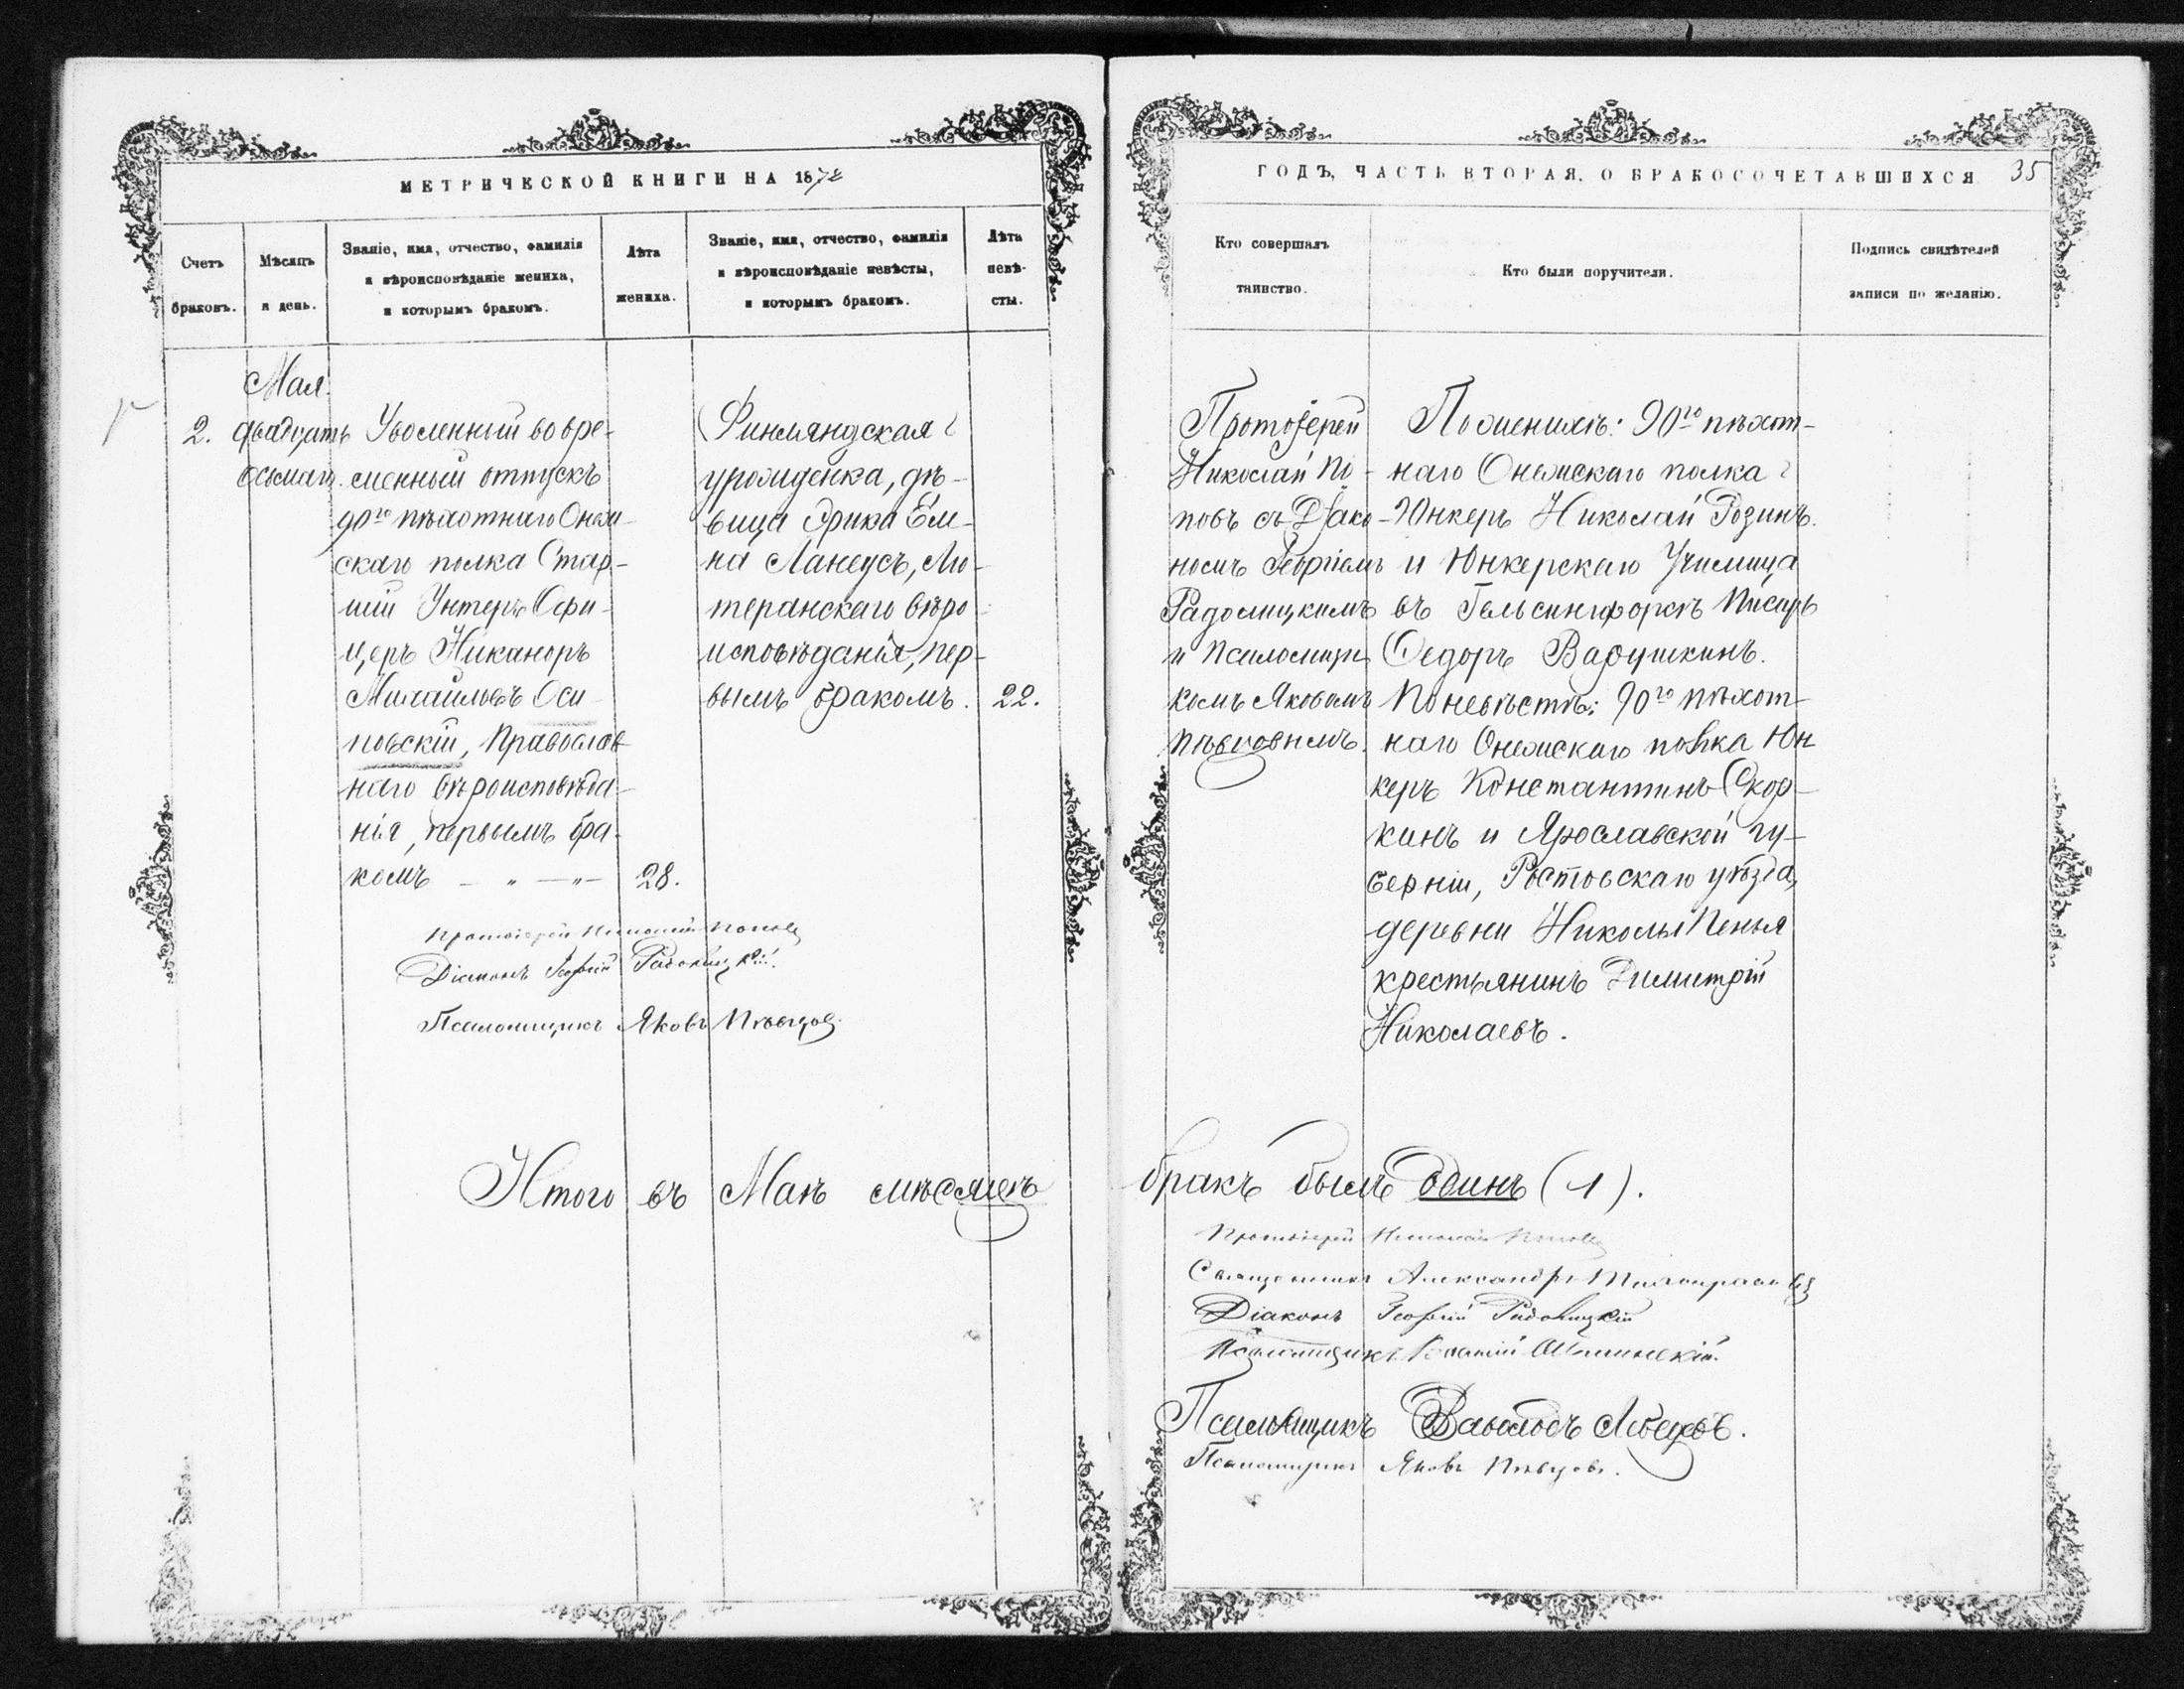 МЕТРИЧЕСКОЙ КНИГИ НА 1872
Счетъ браковъ.
Мѣсяцъ и день.
Званіе, имя, отчество, фамилія и вѣроисповѣданіе жениха, и которымъ бракомъ.
Лѣта жениха.
Званіе, имя, отчество, фамилія и вѣроисповѣданіе невѣсты, и которымъ бракомъ.
Лѣта невѣ-
сты.
2.
Мая
двадцать
осьмаго.
Уволенный во вре-
менный отпускъ
90го пѣхотнаго Онеж-
скаго полка Стар-
шій Унтеръ Офи-
церъ Никаноръ
Михайловъ Оси-
повскій, Православ
наго вѣроисповѣда-
нія, первымъ бра-
комъ — „ — „ —
28.
Финляндская
урожденка, дѣ-
вица Эрика Ели-
на Ланеусъ, Лю-
теранскаго вѣро-
исповѣданія, пер-
вымъ бракомъ.
22.
Протоіерей Николай Поповъ
Діаконъ Георгій Радолицкій.
Псаломщикъ Яковъ Пѣвцовъ.
Итого въ Маѣ мѣсяцѣ
ГОДЪ, ЧАСТЬ ВТОРАЯ, О БРАКОСОЧЕТАВШИХСЯ 35
Кто совершалъ
таинство.
Кто были поручители.
Подпись свидѣтелей
записи по желанію.
Протоіерей
Николай По-
повъ съ Діако-
номъ Георгіемъ
Радолицкимъ
и Псаломщи
комъ Яковомъ
Пѣвцовымъ.
По женихѣ: 90го пѣхот-
наго Онежскаго полка
Юнкеръ Николай Розинъ.
и Юнкерскаго Училища
въ Гельсингфорсѣ Писарь
Федоръ Варушкинъ.
По невѣстѣ: 90го пѣхот-
наго Онежскаго полка Юн
керъ Константинъ Скор-
кинъ и Ярославской гу-
берніи, Ростовскаго уѣзда,
деревни Николы Пенья
крестьянинъ Димитрій
Николаевъ.
бракъ былъ одинъ (1).
Протоіерей Николай Поповъ
Священникъ Александръ
Діаконъ Георгій Радолицкій
Псаломщикъ
Псаломщикъ
Псаломщикъ Яковъ Пѣвцовъ.